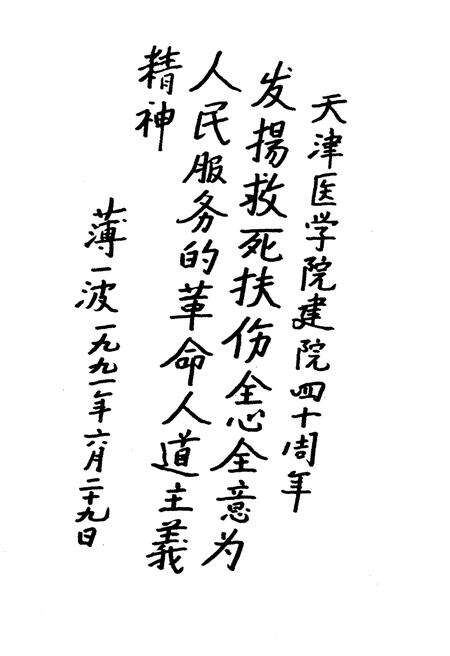 天津医学院建院四十周年
发揚救死扶伤全心全意为
人民服务的革命人道主義
精神
薄一波一九九一年六月二十九日